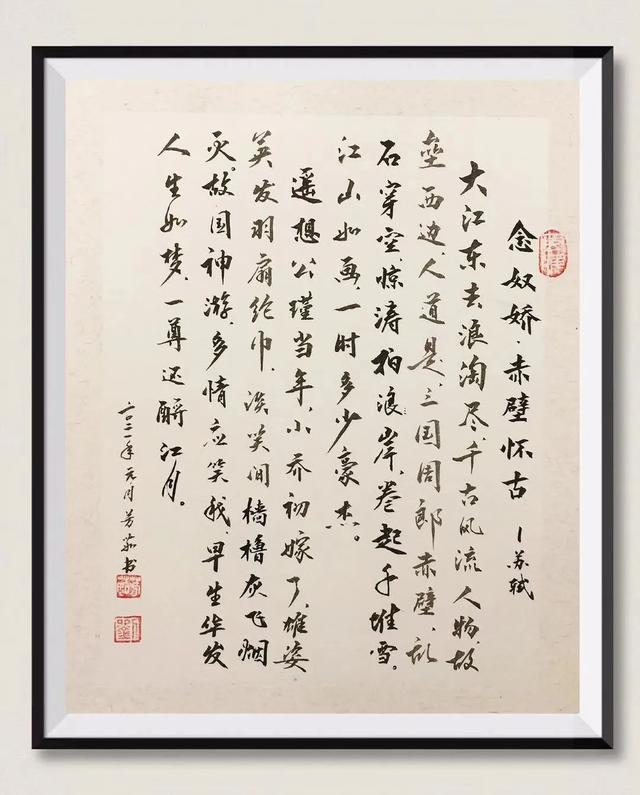 念奴娇·赤壁怀古 —苏轼
大江东去浪淘尽、千古风流人物、故
垒西边、人道是、三国周郎赤壁、乱
石穿空、惊涛拍浪岸、卷起千堆雪。
江山如画、一时多少豪杰。
遥想公瑾当年、小乔初嫁了、雄姿
英发羽扇纶巾、淡笑间樯橹灰飞烟
灭。故国神游、多情应笑我、早生华发
人生如梦、一尊还酹江月。
二〇二一年元月芳茹书